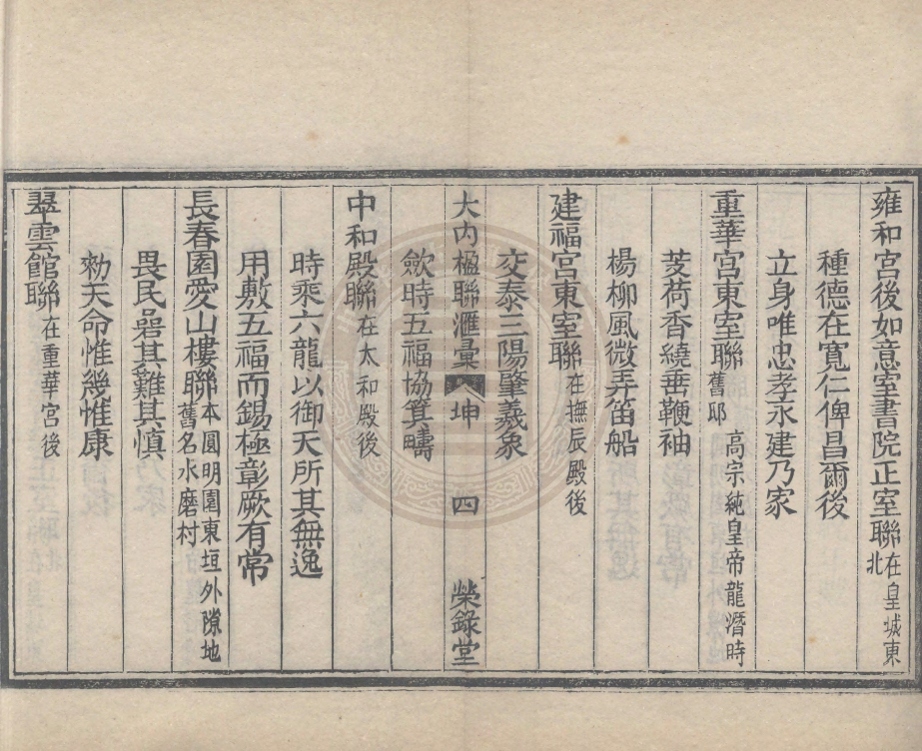 雍和宮後如意室書院正室聯在皇城東北
種德在寬仁俾昌爾後
立身唯忠孝永建乃家
重華宮東室聯高宗純皇帝龍潛時舊邸
芰荷香繞垂鞭袖
楊柳風微弄笛船
建福宮東室聯在撫辰殿後
交泰三陽肇羲象
大內楹聯滙彙 坤 四 榮錄堂
歛時五福協箕疇
中和殿聯在太和殿後
時乘六龍以御天所其無逸
用敷五福而錫極彰厥有常
長春園愛山樓聯本圓明園東垣外隙地舊名水磨村
畏民嵒其難其慎
勑天命惟幾惟康
翠雲館聯在重華宮後